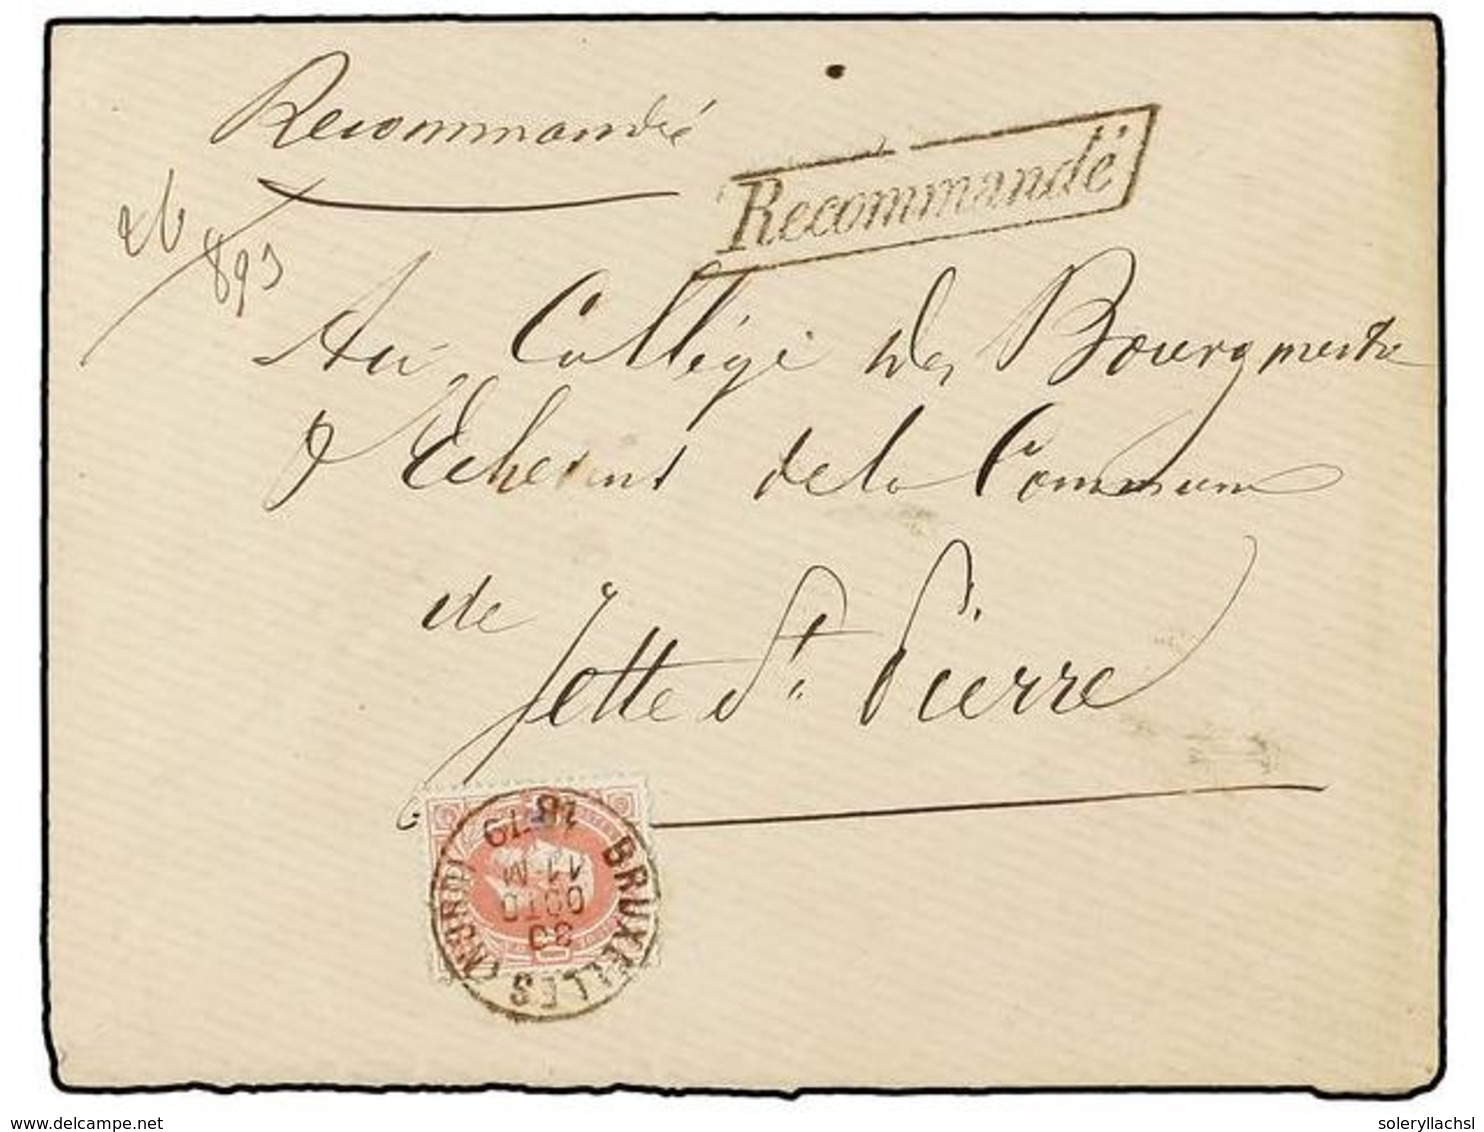 Recommandé
Recommandé
26/893
Au Collège des Bourgmestre
& Echevins de la Commune
de
Jette St. Pierre
BRUXELLES (NORD)
30
OCTO
11-M
1879
delcampe.net
soleryllachsl